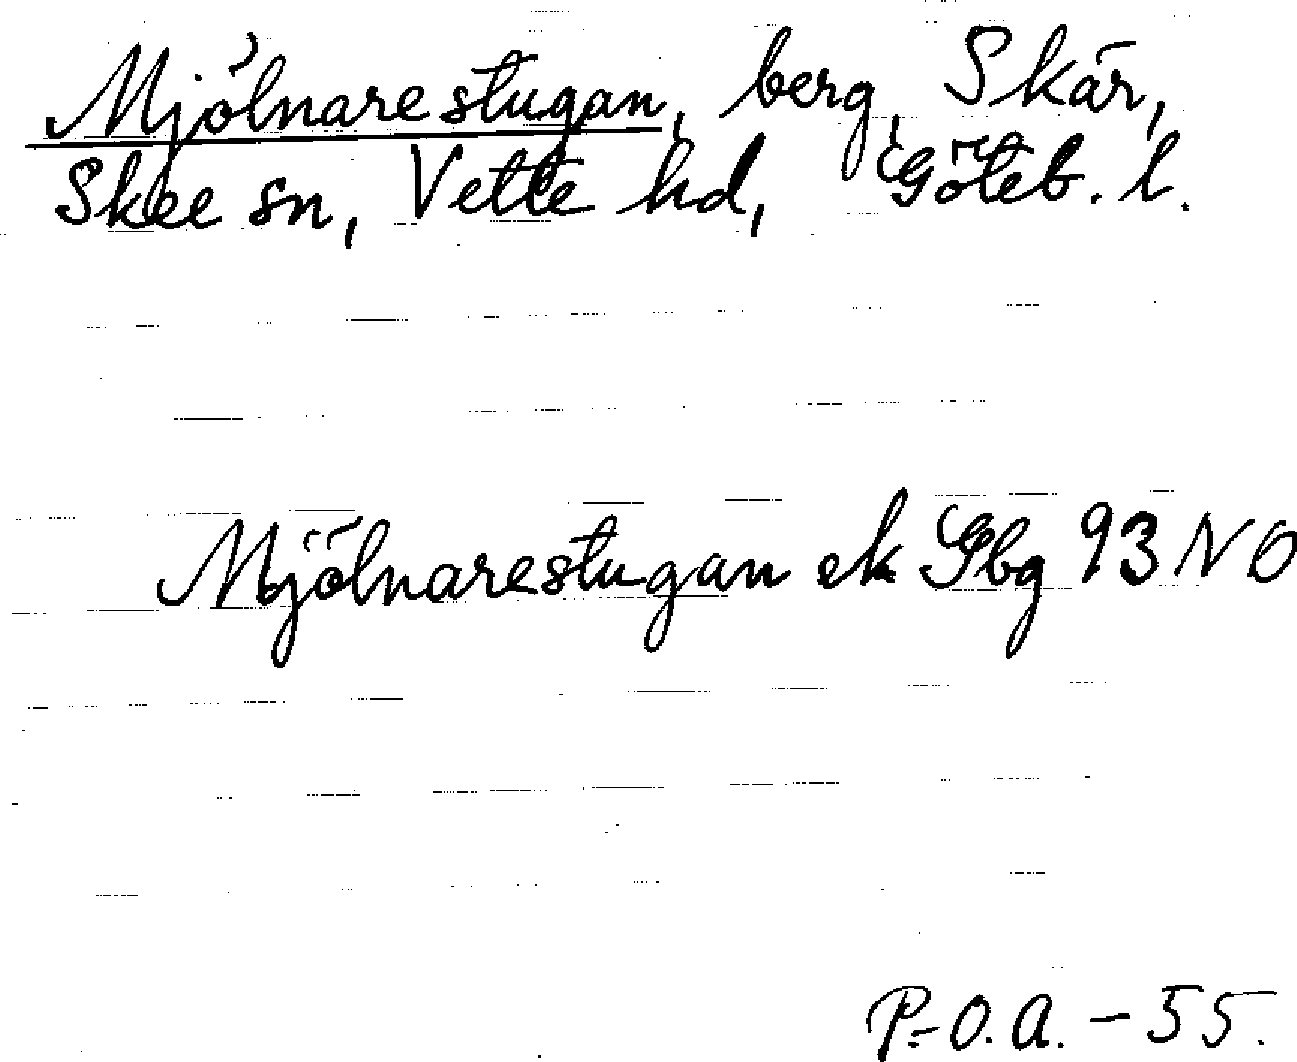 Mjölnarestugan, berg, Skär,
Skee sn, Vette hd, Göteb. l.
Mjölnarestugan ek Gbg 93 NO
P.-O.A. - 55.